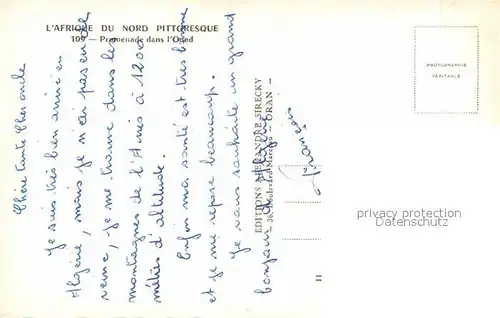 L'AFRIQUE DU NORD PITTORESQUE
109 — Promenade dans l'Oued
PHOTOGRAPHIE
VÉRITABLE
Chère tante Cher oncle
Je suis très bien arrivé en
Algérie, mais je n'ai pas eu de
veine, je me trouve dans les
montagnes de l'Aurès à 1200
mètres d'altitude.
Enfin ma santé est très bonne
et je me repose beaucoup.
Je vous souhaite un grand
bonjour d'Algérie
François
EDITIONS ALEXANDRE SIRECKY
Boulevard Marceau - ORAN -
11
privacy protection
Datenschutz